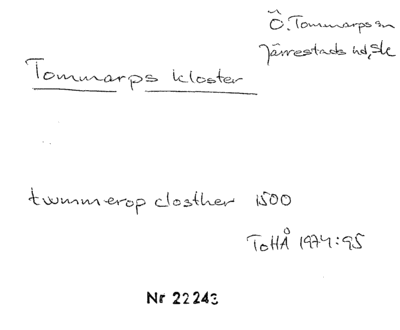 Ö. Tommarps sn
Järrestads hd, Sk
Tommarps kloster
twmmerop closther 1500
ToHÅ 1974:95
Nr 22243